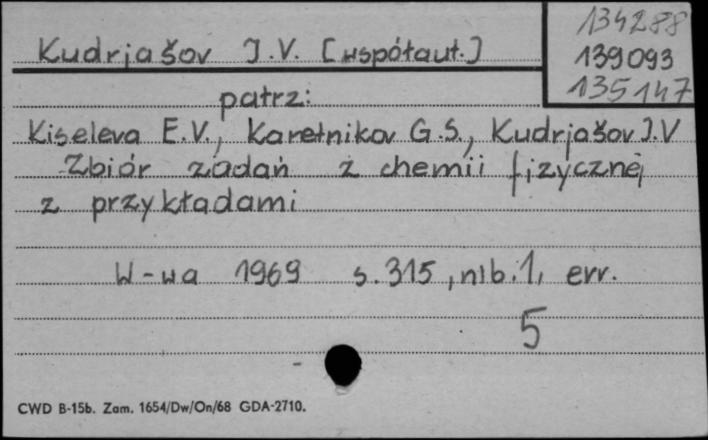 134288
Kudrjašov J.V. [współaut.]
139093
135147
patrz:
Kiseleva E.V., Karetnikov G.S., Kudrjašov J.V
Zbiór zadań z chemii fizycznej
z przykładami
W-wa 1969 s. 315, nlb. 1, err.
5
CWD B-15b. Zam. 1654/Dw/On/68 GDA-2710.